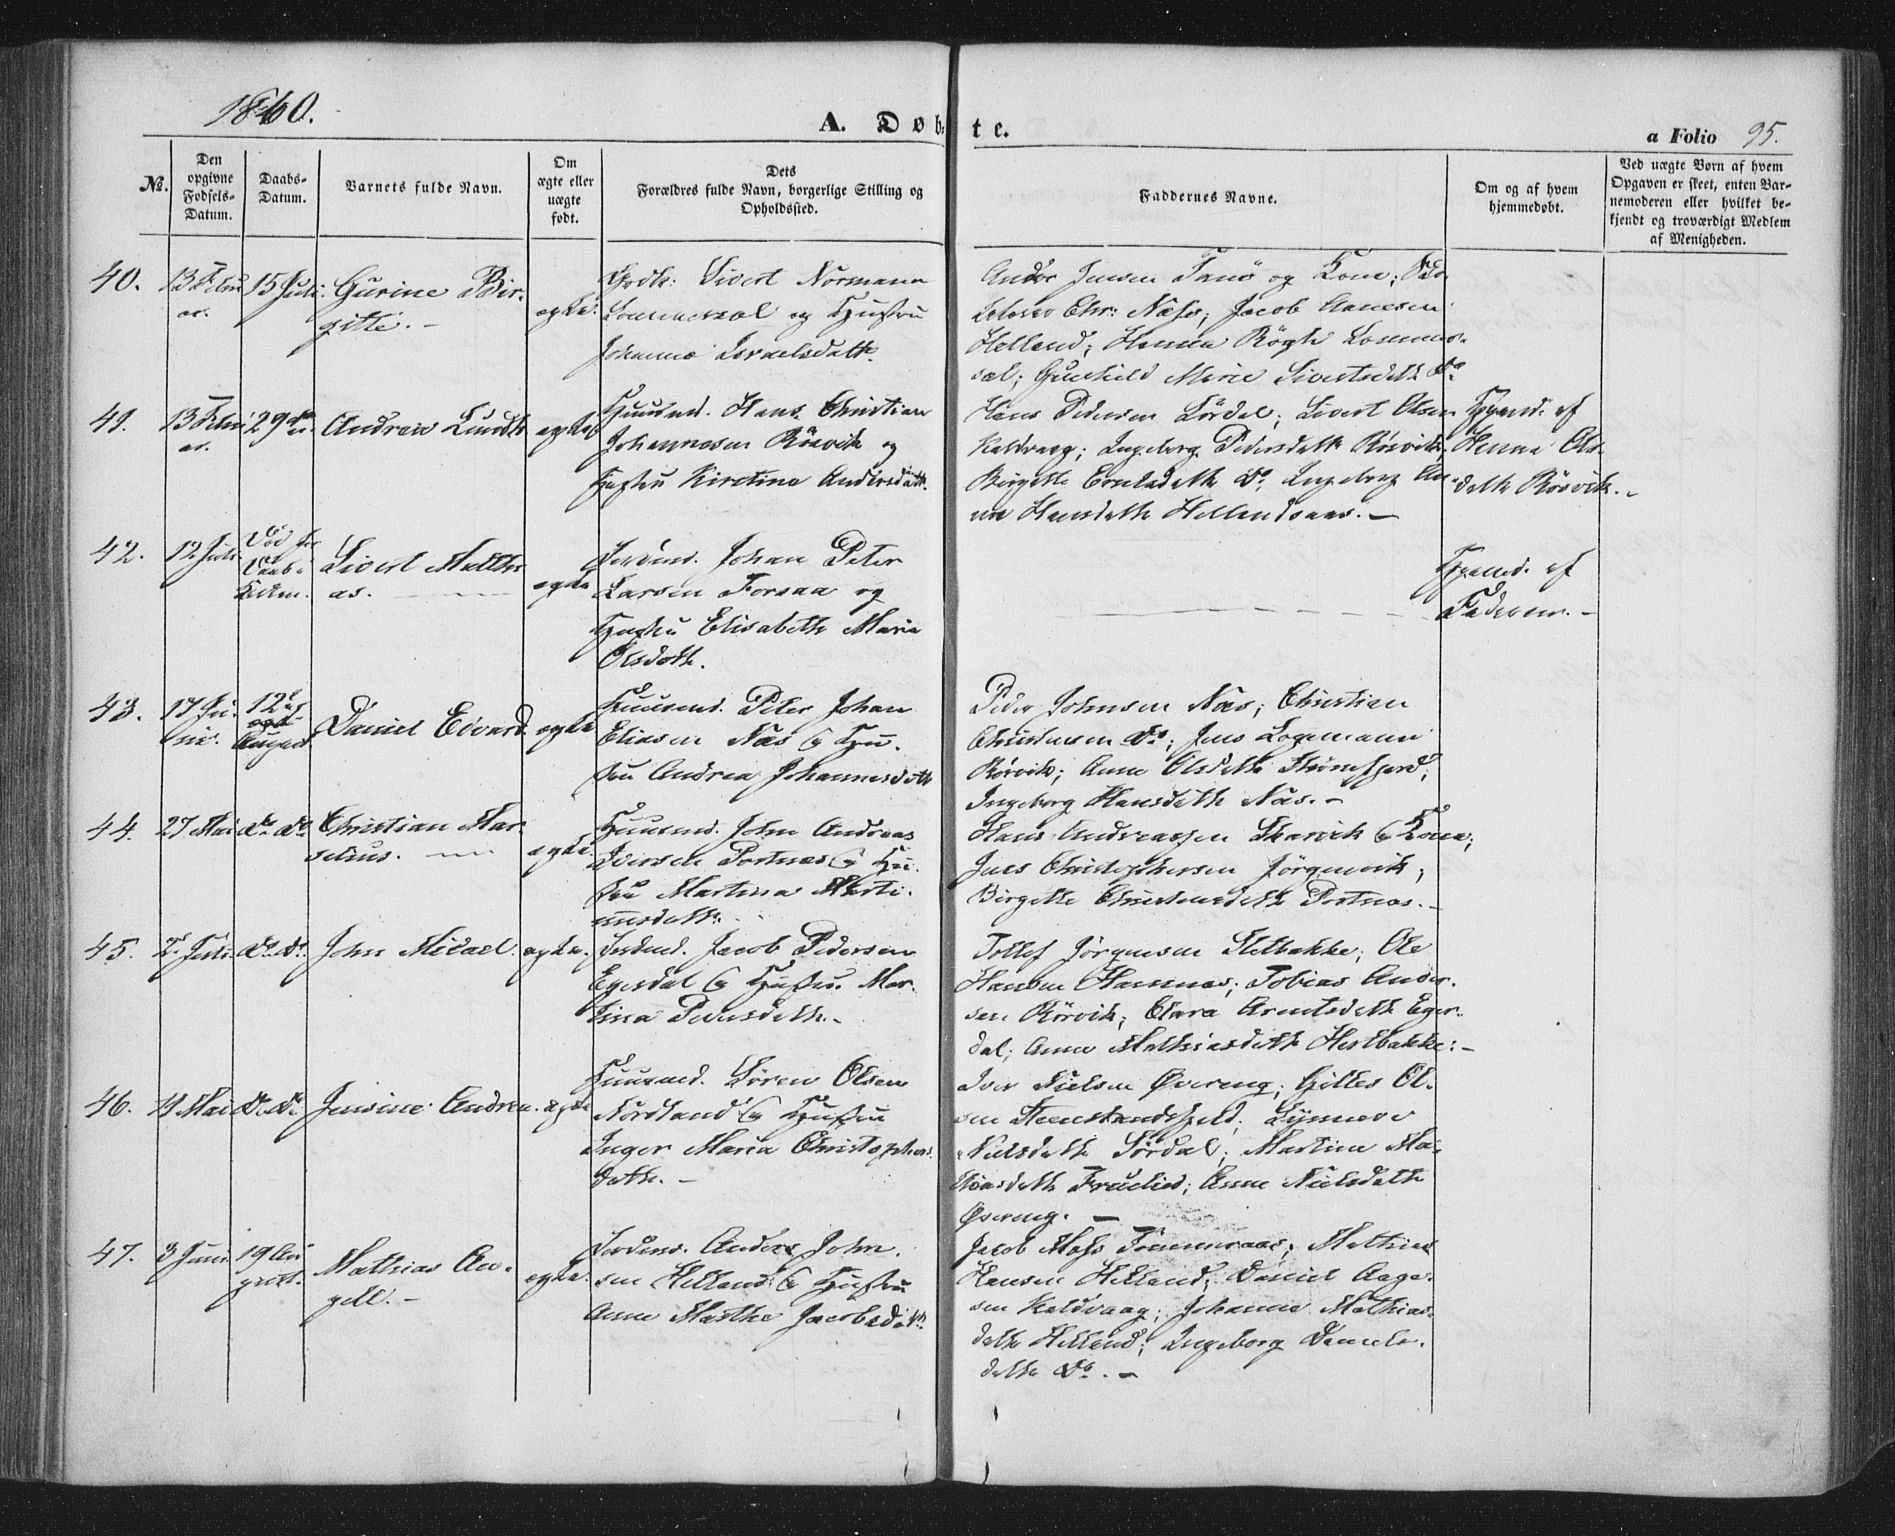 1860.
A. Døbte.
a Folio 95.
No.
Den opgivne Fødsels-Datum.
Daabs-Datum.
Barnets fulde Navn.
Om ægte eller uægte født.
Dets Forældres fulde Navn, borgerlige Stilling og Opholdssted.
Faddernes Navne.
Om og af hvem hjemmedøbt.
Ved uægte Børn af hvem Opgaven er skeet, enten Barnemoderen eller hvilket bekjendt og troværdigt Medlem af Menigheden.
40. 13 Febru 15 Juli Gurine Bir-
ar. gitte. – ægte.
Sivert Normann
og Hustru
Johanna Israelsdatt.
Jensen Tanø og Kone;
Chr: Næss; Jacob
Helland; Hanna Røgh Lommer-
sæl; Gunhild Marie Sivertsdatt Do
41. 13 Febru 29 Andrea Lundth ægte
ar.
Huusmd. Hans Christian
Johannesen Rösvik og
Hustru Kirstina Andersdatt.
Hans Pedersen Lördal; Sivert Olsen
Kaldvaag; Ingeborg Pedersdatt Rösvik;
Birgitte Do Ingeborg An-
na Hansdatt Hellandsaas. –
Hjemd. af
Hanna Ols-
datt Rösvik. –
42. 12 Juli Død før
Daab
Sivert Matthi
as. ægte
Inderst. Johan Peter
Larsen Forsaa og
Hustru Elisabeth Maria
Olsdatt.
Hjemmed. af
Faderen. –
43. 17 Ju- 12 Daniel Edvard ægte
nii. August
Huusmd. Peter Johan
Eliasen Næs og Hu-
stru Andrea Johannesdatt
Peder Johnsen Næs; Christian
Christensen do; Jens Logemann
Rørvik; Anne Olsdatt
Ingeborg Hansdatt Næs. –
44. 27 Mai do do Christian Mar
selius. ægte
Huusmd. John Andreas
Iversen Portnæs og Hu-
stru Martina Marti-
nusdatt.
Hans Andreassen Skarvik og Kone;
Jens Christophersen Jörgenvik;
Birgitte Christensdatt Portnæs. –
45. 2 Juli do do John Micael. ægte.
Inderst. Jacob Pedersen
Egerdal og Hustru Mar-
tina Pedersdatt. –
Tollef Jörgensen Sletbakke; Ole
Hansen Hamnæs; Tobias Ander-
sen Rörvik; Clara Arntsdatt Eger-
dal; Anna Mathiasdatt Hestbakke: –
46. 19 Mai do do Jensine Andrea ægte
Huusmd. Sören Olsen
Nordland og Hustru
Inger Maria Christophers
datt. –
Iver Nielsen Øvereng; Gilles Ol-
sen Steenslandsfjeld; Synneve
Nielsdatt Sördal; Martina Ma-
thiasdatt Anne Nielsdatt
Øvereng. –
47. 3 Juni 19 Au- Mathias An-
gust. gell. – ægte.
Inderst. Anders John-
sen Helland og Hustru
Anne Marthe Jacobsdatt.
Jacob Moss Tømmeraas; Mathias
Hansen Helland; Daniel Aage-
sen Kaldvaag; Johanna Mathias-
datt Helland; Ingeborg Daniels-
datt do. –